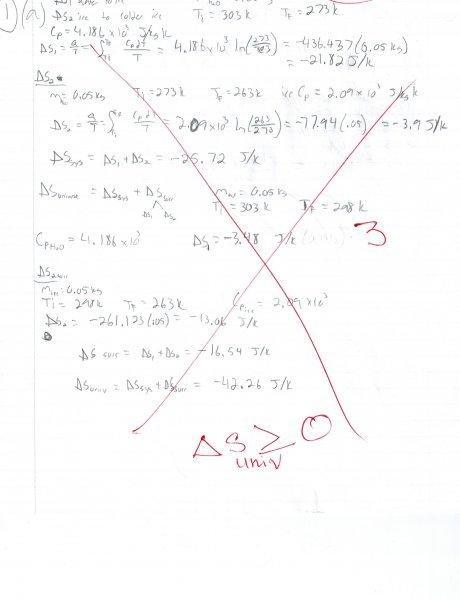 1) (a)
ΔS₂ ice to colder ice T₁ = 303 K T_F = 273 K
C_p = 4.186 x10³ J/kg K
ΔS₁ = Q/T = ∫ C_p dT/T = 4.186 x10³ ln(273/303) = -436.437 (0.05 kg)
= -21.82 J/K
ΔS₂
m = 0.05 kg T₁ = 273 K T_F = 263 K ice C_p = 2.09 x10³ J/kg K
ΔS₂ = Q/T = ∫ C_p dT/T = 2.09 x10³ ln(263/273) = -77.94 (.05) = -3.9 J/K
ΔS_sys = ΔS₁ + ΔS₂ = -25.72 J/K
ΔS_universe = ΔS_sys + ΔS_surr m_w = 0.05 kg
ΔS₁ ΔS₂ T₁ = 303 K T_F = 298 K
C_pH₂O = 4.186 x10³ ΔS₁ = -3.48 J/K 3
ΔS₂ surr
m_ice = 0.05 kg
T₁ = 298 K T_F = 263 K C_p ice = 2.09 x10³
ΔS₂ = -261.123 (.05) = -13.06 J/K
ΔS surr = ΔS₁ + ΔS₂ = -16.54 J/K
ΔS_univ = ΔS_sys + ΔS_surr = -42.26 J/K
ΔS_univ ≥ 0